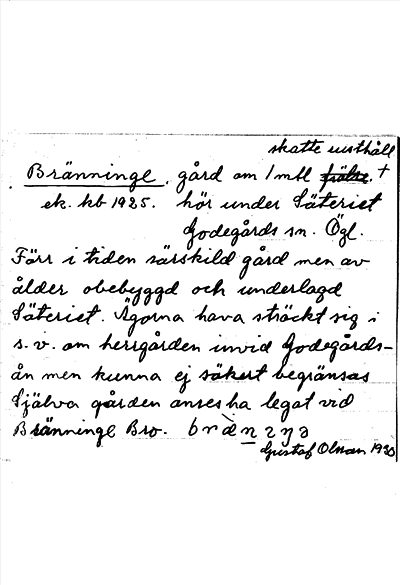 skatte rusthåll
Bränninge, gård om 1 mtl frälse. +
ek. kb 1925. hör under Säteriet
Godegårds sn. Ögl.
Förr i tiden särskild gård men av
ålder obebyggd och underlagd
Säteriet. Ägorna hava sträckt sig i
s.v. om herrgården invid Godegårds-
ån men kunna ej säkert begränsas
Själva gården anses ha legat vid
Bränninge Bro.
Gustaf Olson 1930